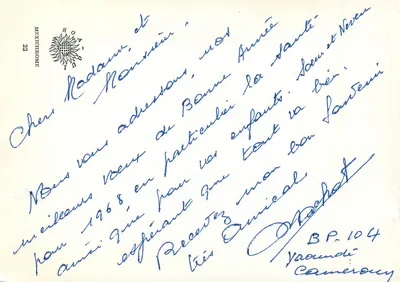 MEXICHROME
23
Chers Madame et
Monsieur.
Nous vous adressons, nos
meilleurs vœux de Bonne Année
pour 1968 en particulier la santé
ainsi que pour vos enfants. Sœur et Neveu
espérant que tout va bien.
Recevez mon bon Souvenir
très Amical
BP. 104
Yaoundé
Cameroun